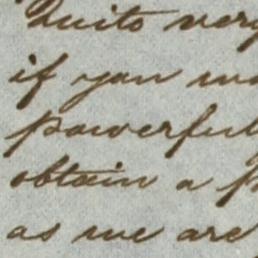 Quito very
if you
powerful
obtain a
as we are